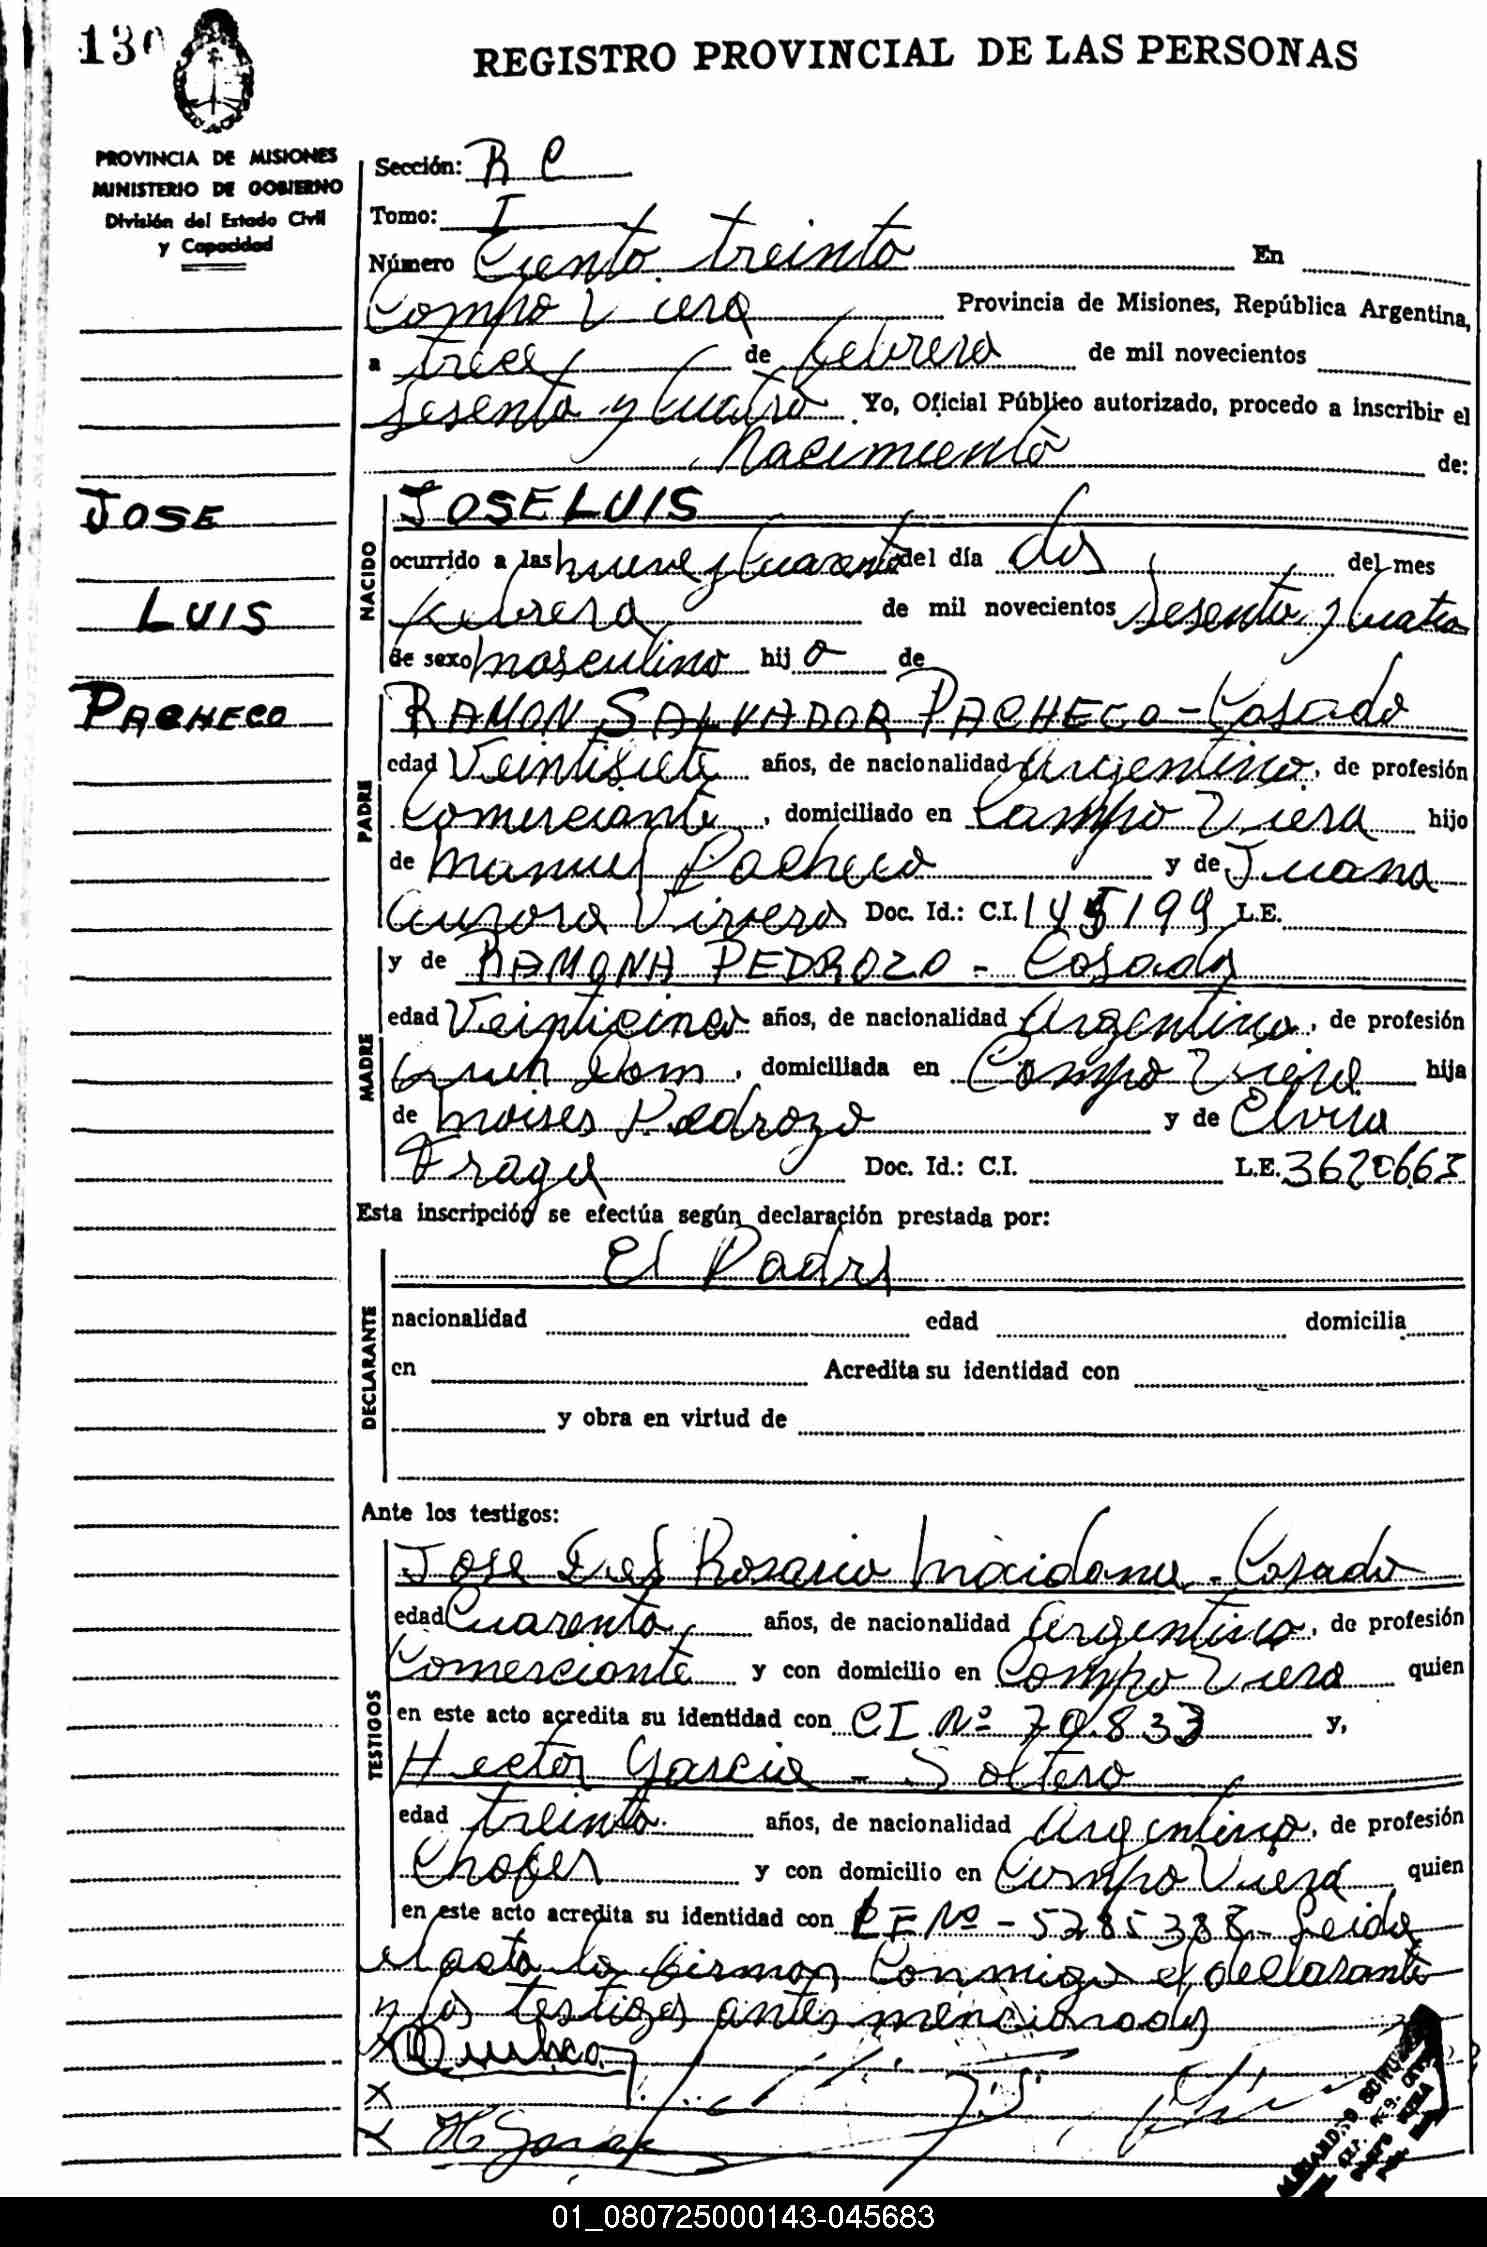 130
REGISTRO PROVINCIAL DE LAS PERSONAS
PROVINCIA DE MISIONES
MINISTERIO DE GOBIERNO
División del Estado Civil
y Capacidad
Sección: R C
Tomo: I
Número Ciento treinta En
Campo Viera Provincia de Misiones, República Argentina,
a trece de febrero de mil novecientos
sesenta y cuatro Yo, Oficial Público autorizado, procedo a inscribir el
Nacimiento de:
JOSE
LUIS
PACHECO
NACIDO
JOSE LUIS
ocurrido a las nueve y cuarenta del día dos del mes
febrero de mil novecientos sesenta y cuatro
de sexo masculino hij o de
PADRE
RAMON SALVADOR PACHECO - Casado
edad Veintisiete años, de nacionalidad Argentino, de profesión
Comerciante, domiciliado en Campo Viera hijo
de Manuel Pacheco y de Juana
Doc. Id.: C.I. 145199 L.E.
MADRE
y de RAMONA PEDROZO - Casada
edad Veinticinco años, de nacionalidad Argentina, de profesión
Dom, domiciliada en Campo Viera hija
de Moises Pedrozo y de Elvira
Doc. Id.: C.I. L.E. 3620663
Esta inscripción se efectúa según declaración prestada por:
DECLARANTE
El Padre
nacionalidad edad domicilia
en Acredita su identidad con
y obra en virtud de
Ante los testigos:
TESTIGOS
Jose Del Rosario - Casado
edad Cuarenta años, de nacionalidad Argentino, de profesión
Comerciante y con domicilio en Campo Viera quien
en este acto acredita su identidad con C I Nº 70.833 y,
Hector Garcia - Soltero
edad treinta años, de nacionalidad Argentino, de profesión
Chofer y con domicilio en Campo Viera quien
en este acto acredita su identidad con Nº - 5285388 - Leida
el acta la firman conmigo el declarante
y los testigos antes mencionados
X
X
X H Garcia
01_080725000143-045683